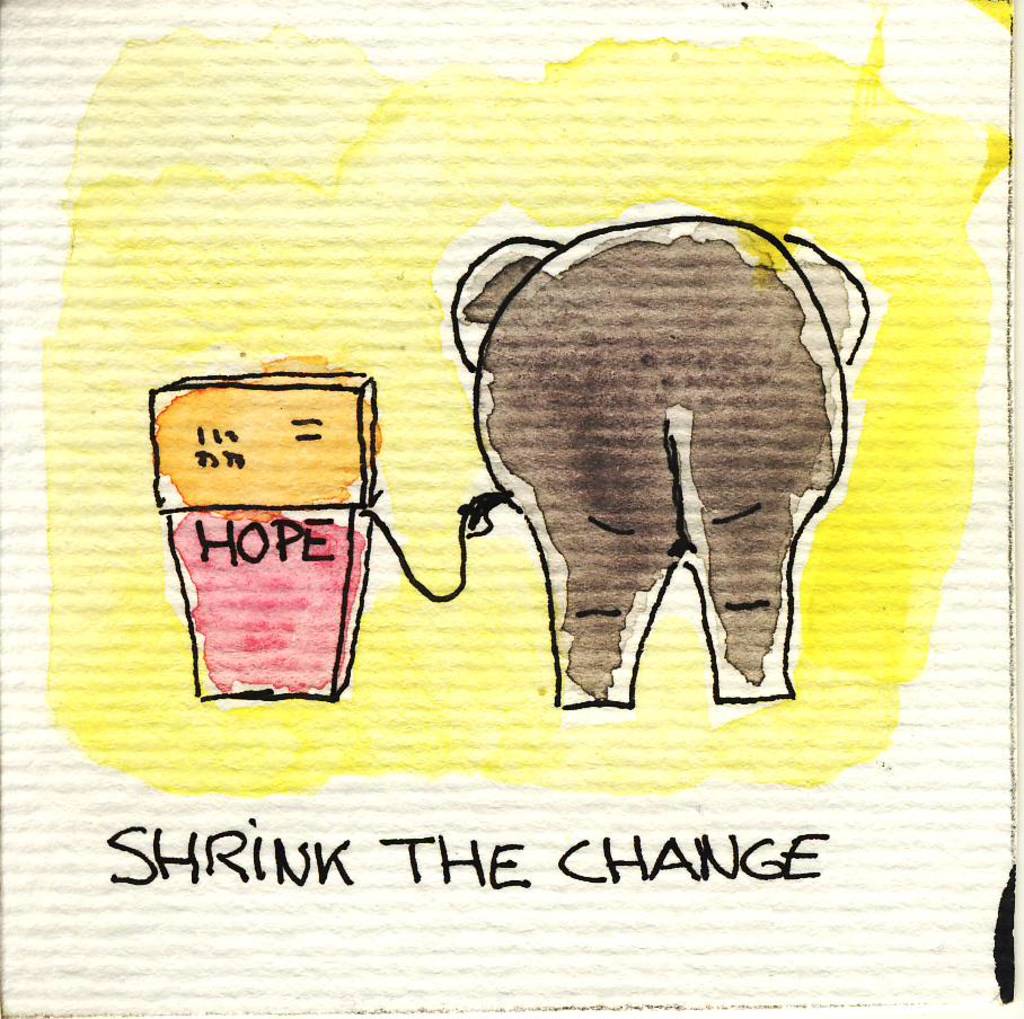 HOPE
SHRINK THE CHANGE